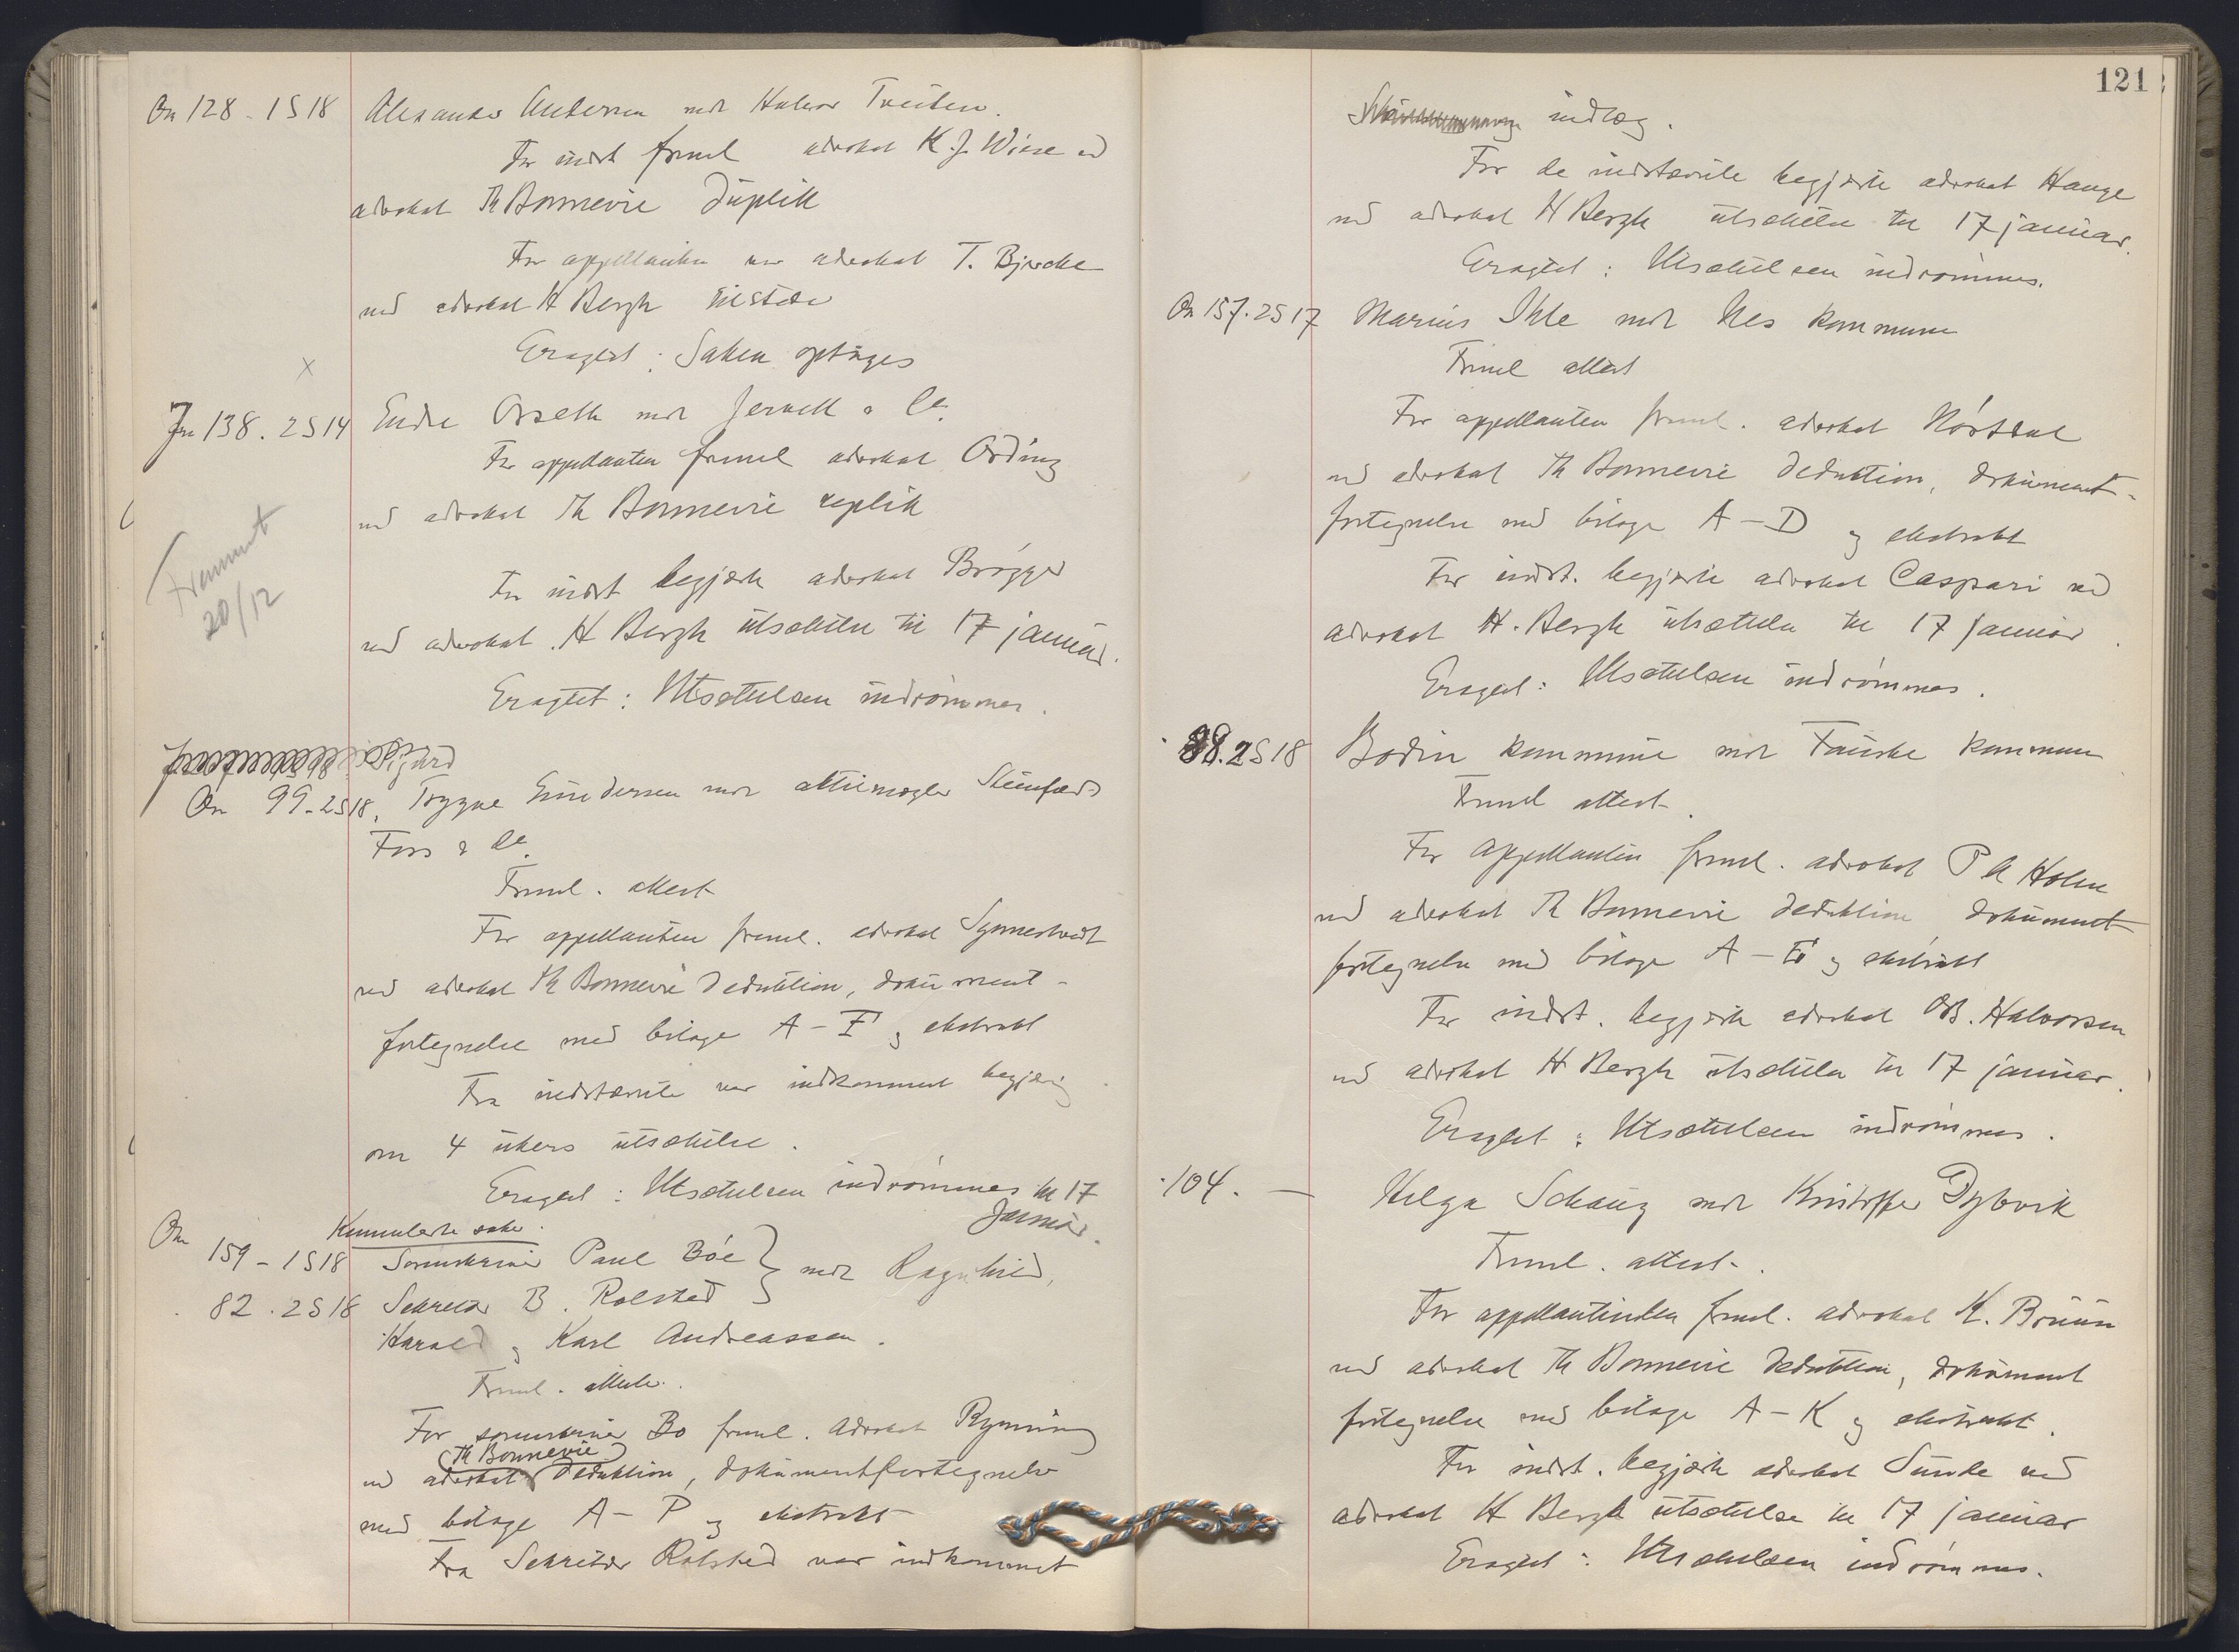 On 128 - 1S18 Alexander Andersen mot Halvor Treiten.
For indst freml advokat K. J. Wiese ved
advokat Th Bonnevie Duplik
For appellanten var advokat T. Bjercke
ved advokat H Bergh tilstede
Eragtet : Saken optages
x
Jn 138. 2S14 Endre Orseth mot Jervell & Co.
For appellanten freml advokat Ording
ved advokat Th Bonnevie replik
Fremmet
20/12
For indst begjærte advokat Brøgger
ved advokat H Bergh utsættelse til 17 januar.
Eragtet : Utsættelsen indrømmes.
Sigurd
On 99-2S18, Trygve Gundersen mot aktiemægler
Foss & Co.
Freml. attest
For appellanten freml. advokat Synnestvedt
ved advokat Th Bonnevie Deduktion, dokument-
fortegnelse med bilage A - F og ekstrakt
Fra indstævnte var indkommet begjæring
om 4 ukers utsættelse.
Eragtet : Utsættelsen indrømmes til 17
Januar.
Kumulerte saker.
On 159 - 1S18 Sorenskriver Paul Bøe } mot Ragnhild,
82. 2S18 Sekretær B. Rolsted
Harald og Karl Andreassen.
Freml. attester.
For sorenskriver Bø freml. advokat Rynning
(Th Bonnevie)
ved advokat Deduktion, dokumentfortegnelse
med bilage A - P og ekstrakt
Fra Sekretær Rolsted var indkommet
121
indlæg.
For de indstævnte begjærte advokat Hauge
ved advokat H Bergh utsættelse til 17 januar.
Eragtet : Utsættelsen indrømmes.
On 157. 2S17 Marius Ihle mot Nes kommune
Freml attest
For appellanten freml. advokat Nørdal
ved advokat Th Bonnevie Deduktion, dokument-
fortegnelse med bilage A - D og ekstrakt
For indst. begjærte advokat Caspari ved
advokat H. Bergh utsættelse til 17 januar.
Eragtet : Utsættelsen indrømmes.
88. 2S18 Bodin kommune mot Fauske kommune
Freml attest.
For appellanten freml. advokat P A Holm
ved advokat Th Bonnevie deduktion dokument
fortegnelse med bilage A - og ekstrakt
For indst. begjærte advokat O. Halvorsen
ved advokat H Bergh utsættelse til 17 januar.
Eragtet : Utsættelsen indrømmes.
104. - Helga Schanz mot Kristoffer Dybvik
Freml. attest.
For appellantinden freml. advokat K. Bruun
ved advokat Th Bonnevie Deduktion, dokument
fortegnelse med bilage A - K og ekstrakt.
For indst. begjærte advokat Sunde ved
advokat H Bergh utsættelse til 17 januar
Eragtet : Utsættelsen indrømmes.